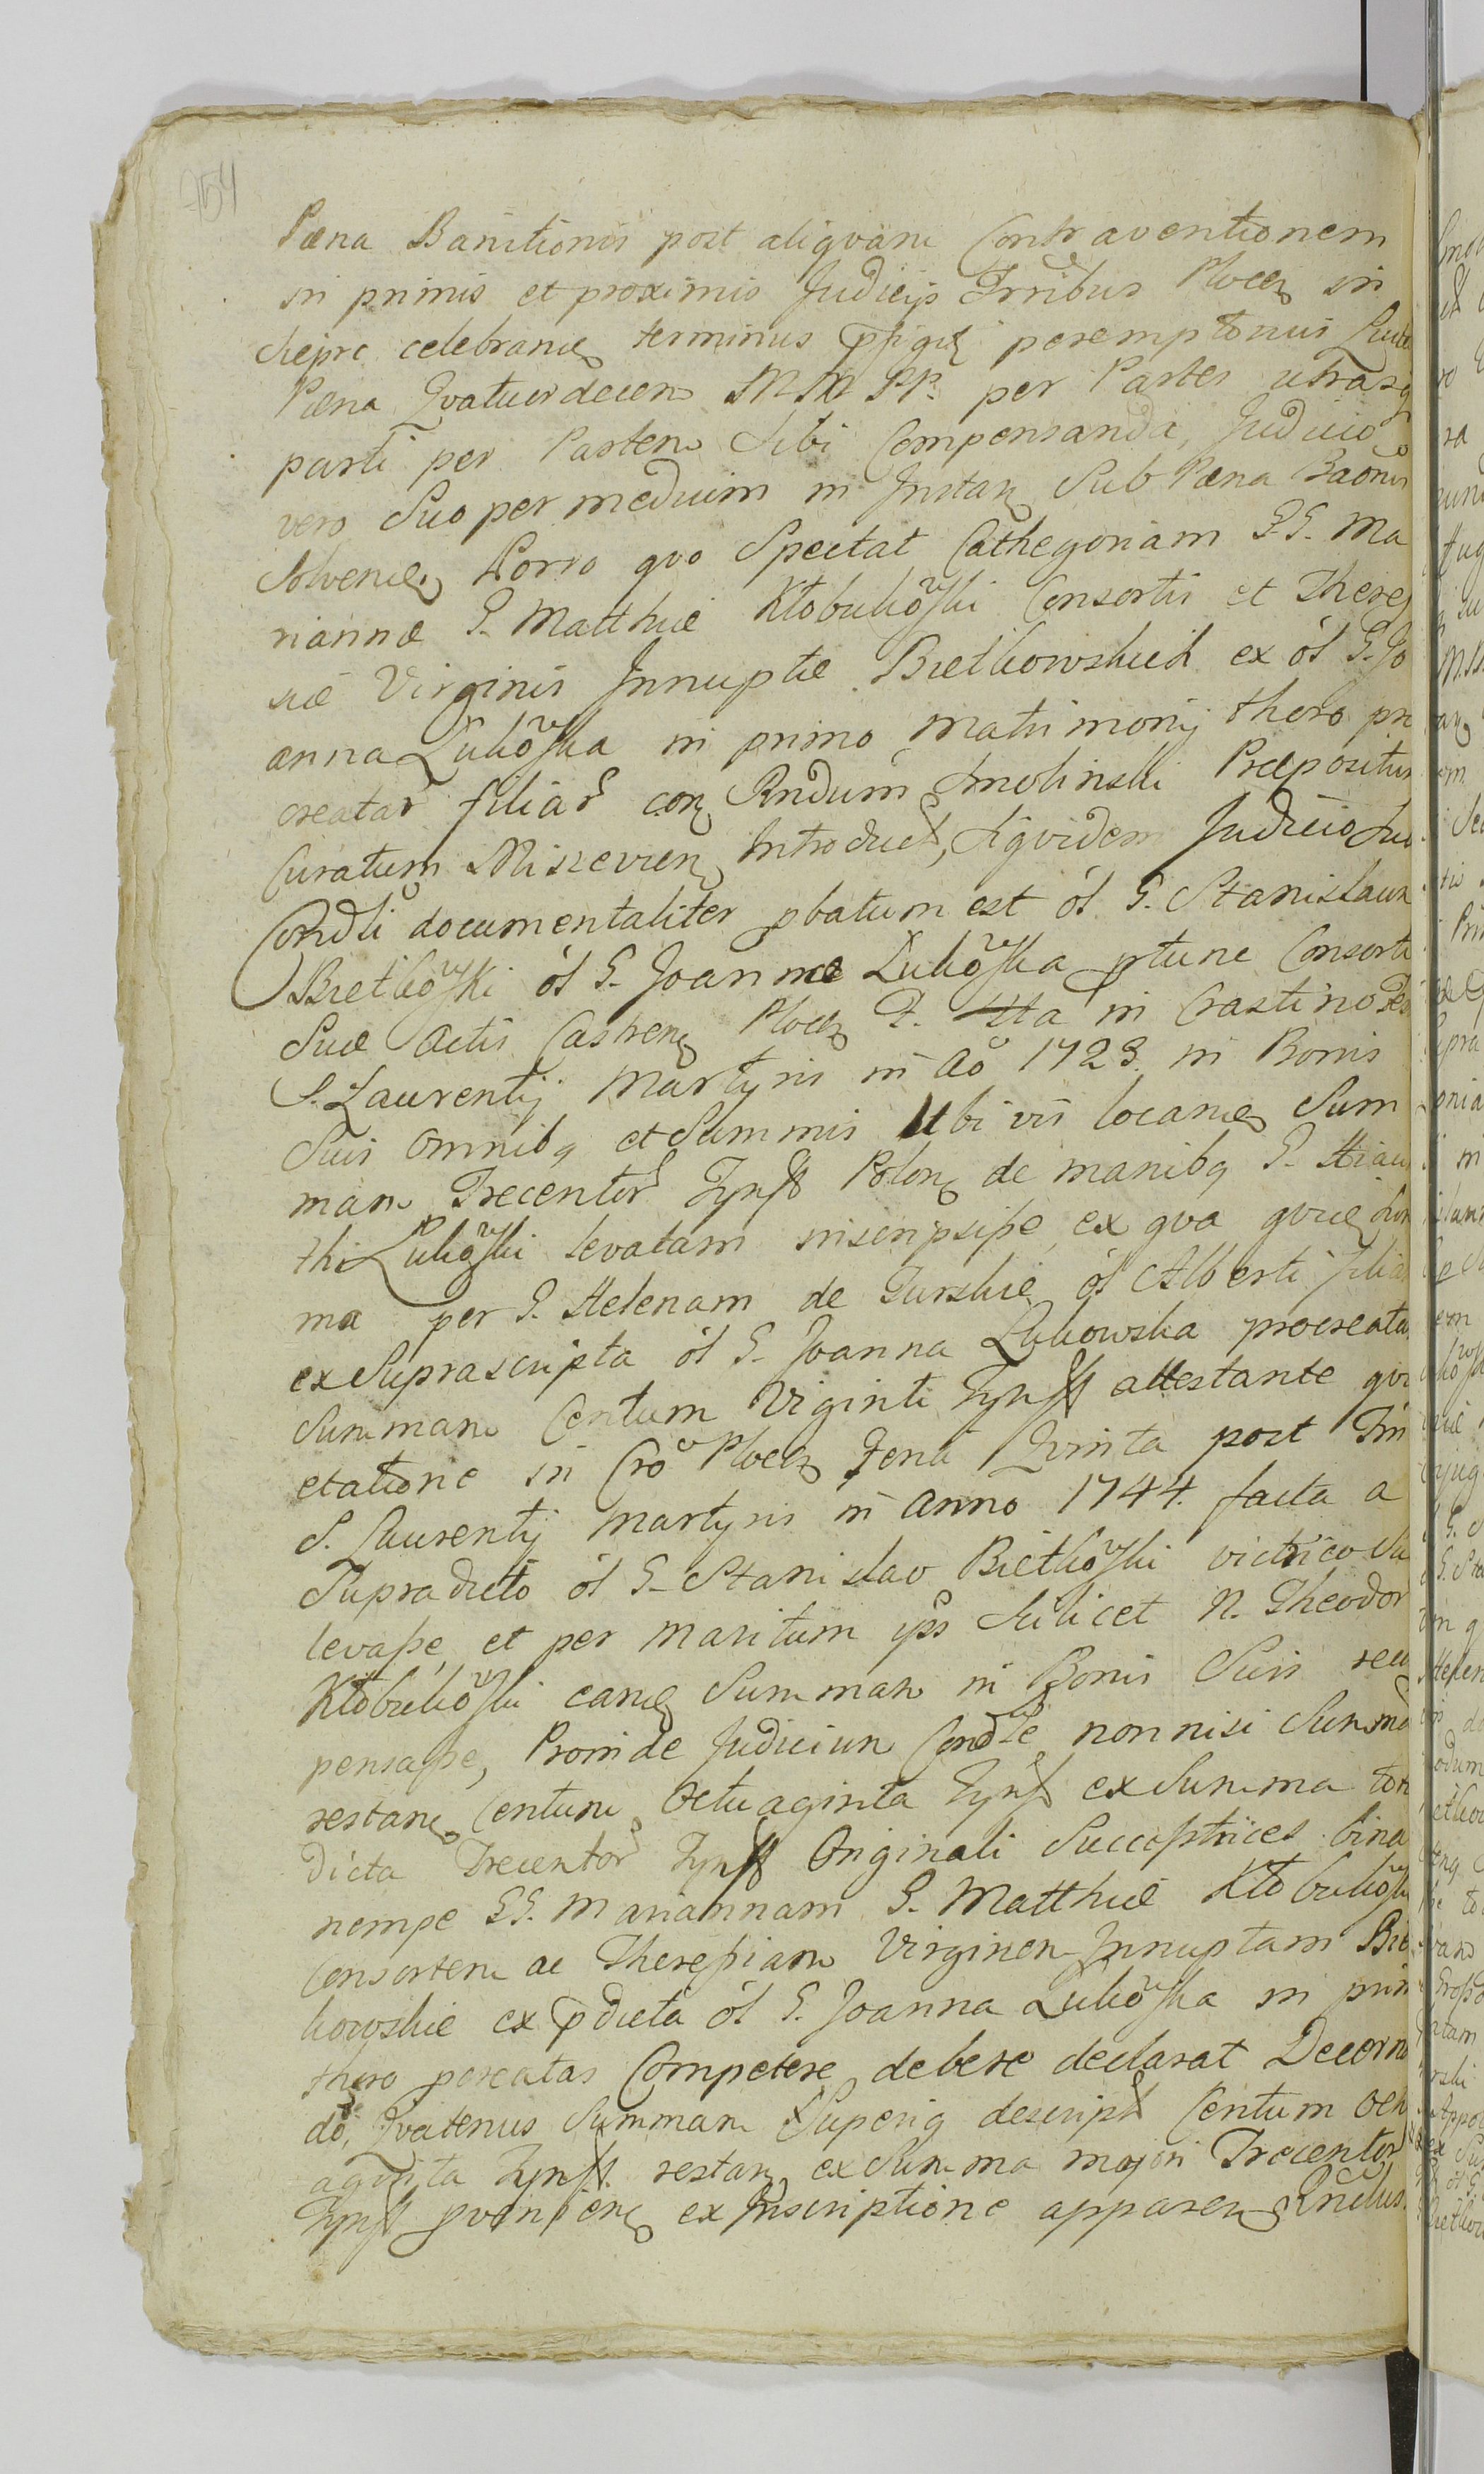 954
Pœna Banitionis post aliqvam Contraventionem
in primis et proximis Judicijs Trribus Plocen in
Ciepre celebrand terminus pfigit peremptorius
Pœna Qvatuordecem MM PP. per Partes utrasq
parti per Partem Sibi Compensanda, Judicio
vero Suo per medium in Instan Sub Pœna Baonis
Solvend, Porro qvo Spectat Cathegoriam G.G. Ma
riannæ G. Matthiæ Kłobukowski Consortis et There
siæ Virginis Innuptæ Bietkowskich ex ol G. Jo
anna Lukowska in primo Matrimonij thoro pro
creatar filiar con Rndum Smolinski Præpositum
Curatum Miszevien Introduct, Siqvidem Judicio Suo
Condli documentaliter pbatum est ol G. Stanislaum
Bietkowski ol G. Joannæ Lukowska ptunc Consorti
Suæ Actis Castren Plocen F. in Crastino Fes
S. Laurentij Martyris in Ao 1723. in Bonis
Suis Omnibq et Summis Ubi vis locand Sum
mam Trecentor Tynff Polon de manibq G. Hiacin
thi Lukowski levatam inscripsisse, ex qva qvid Sum
ma per G. Helenam de Turskie ol Alberti filiam
ex Suprascripta ol G. Joanna Lukowska procreata
Summam Centum Viginti Tynff attestante qvi
etatione in Cro Plocen Feria Qvinta post Fm
S. Laurentij Martyris in Anno 1744. facta a
Supradicto ol G. Stanislao Bietkowski victrico Suo
levasse, et per Maritum ips Scilicet N. Theodor
Kłobukowski eand Summam in Bonis Suis recom
pensasse, Proinde Judicium Condle nonnisi Summa
restan Centum Octuaginta Tynff ex Summa
dicta Trecentor Tynff Originali Succeptrices bina
nempe GG. Mariannam G. Matthiæ Kłobukowski
Consortem ac Theresiam Virginem Innuptam Biet
kowskie ex pdicta ol G. Joanna Lukowska in prim
thoro pcreatas Competere debere declarat Decernen
do, Qvatenus Summam Superiq descript Centum Octu
aginta Tynff. restan ex Summa majori Trecentor
Tynff pvenien ex Inscriptione apparen Rndus.